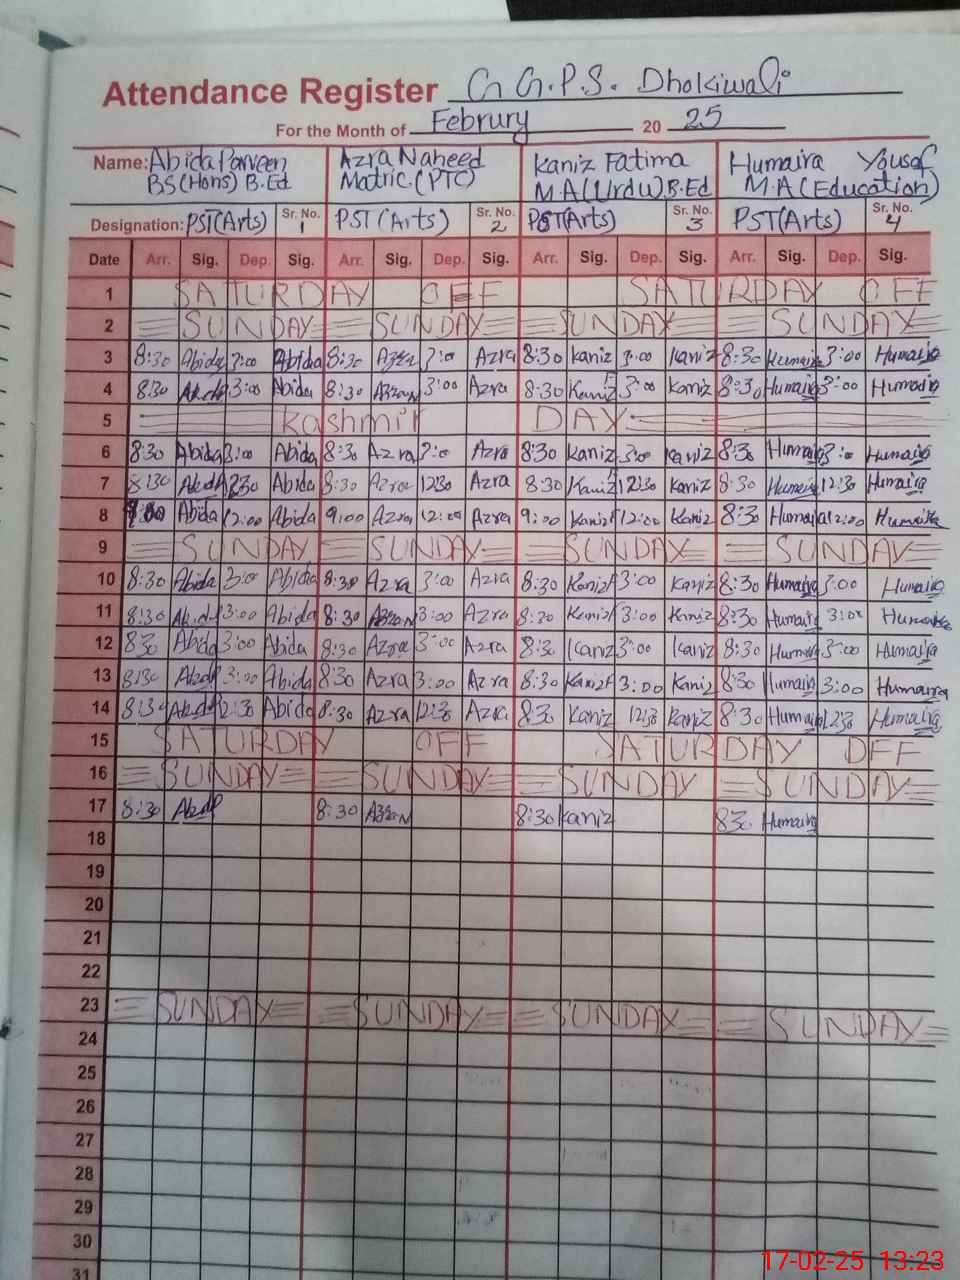 Attendance Register G.G.P.S. Dhokiwali
For the Month of Februry 20 25
Name: Abida Parveen Azra Naheed Kaniz Fatima Humaira Yousaf
BS(Hons) B.Ed Matric(PTC) M.A(Urdu) B.Ed M.A(Education)
Designation: PST(Arts) Sr. No. 1 PST(Arts) Sr. No. 2 PST(Arts) Sr. No. 3 PST(Arts) Sr. No. 4
Date Arr. Sig. Dep. Sig. Arr. Sig. Dep. Sig. Arr. Sig. Dep. Sig. Arr. Sig. Dep. Sig.
1 SATURDAY OFF SATURDAY OFF
2 SUNDAY SUNDAY SUNDAY SUNDAY
3 8:30 Abida 3:00 Abida 8:30 Azra 3:00 Azra 8:30 Kaniz 3:00 Kaniz 8:30 Humaira 3:00 Humaira
4 8:30 3:00 Abida 8:30 3:00 Azra 8:30 Kaniz 3:00 Kaniz 8:30 Humaira 3:00 Humaira
5 Kashmir DAY
6 8:30 Abida 3:00 Abida 8:30 Azra 3:00 Azra 8:30 Kaniz 3:00 Kaniz 8:30 Humaira 3:00 Humaira
7 8:30 12:30 Abida 8:30 Azra 12:30 Azra 8:30 Kaniz 12:30 Kaniz 8:30 Humaira 12:30 Humaira
8 Abida 12:00 Abida 9:00 Azra 12:00 Azra 9:00 Kaniz 12:00 Kaniz 8:30 Humaira 12:00 Humaira
9 SUNDAY SUNDAY SUNDAY SUNDAY
10 8:30 Abida 3:00 Abida 8:30 Azra 3:00 Azra 8:30 Kaniz 3:00 Kaniz 8:30 Humaira 3:00 Humaira
11 8:30 3:00 Abida 8:30 3:00 Azra 8:30 Kaniz 3:00 Kaniz 8:30 Humaira 3:00 Humaira
12 8:30 Abida 3:00 Abida 8:30 Azra 3:00 Azra 8:30 Kaniz 3:00 Kaniz 8:30 Humaira 3:00 Humaira
13 8:30 3:00 Abida 8:30 Azra 3:00 Azra 8:30 Kaniz 3:00 Kaniz 8:30 Humaira 3:00 Humaira
14 8:30 12:30 Abida 8:30 Azra 12:30 Azra 8:30 Kaniz 12:30 Kaniz 8:30 Humaira 12:30 Humaira
15 SATURDAY OFF SATURDAY OFF
16 SUNDAY SUNDAY SUNDAY SUNDAY
17 8:30 8:30 8:30 Kaniz 8:30 Humaira
18
19
20
21
22
23 SUNDAY SUNDAY SUNDAY SUNDAY
24
25
26
27
28
29
30
31
17-02-25 13:23